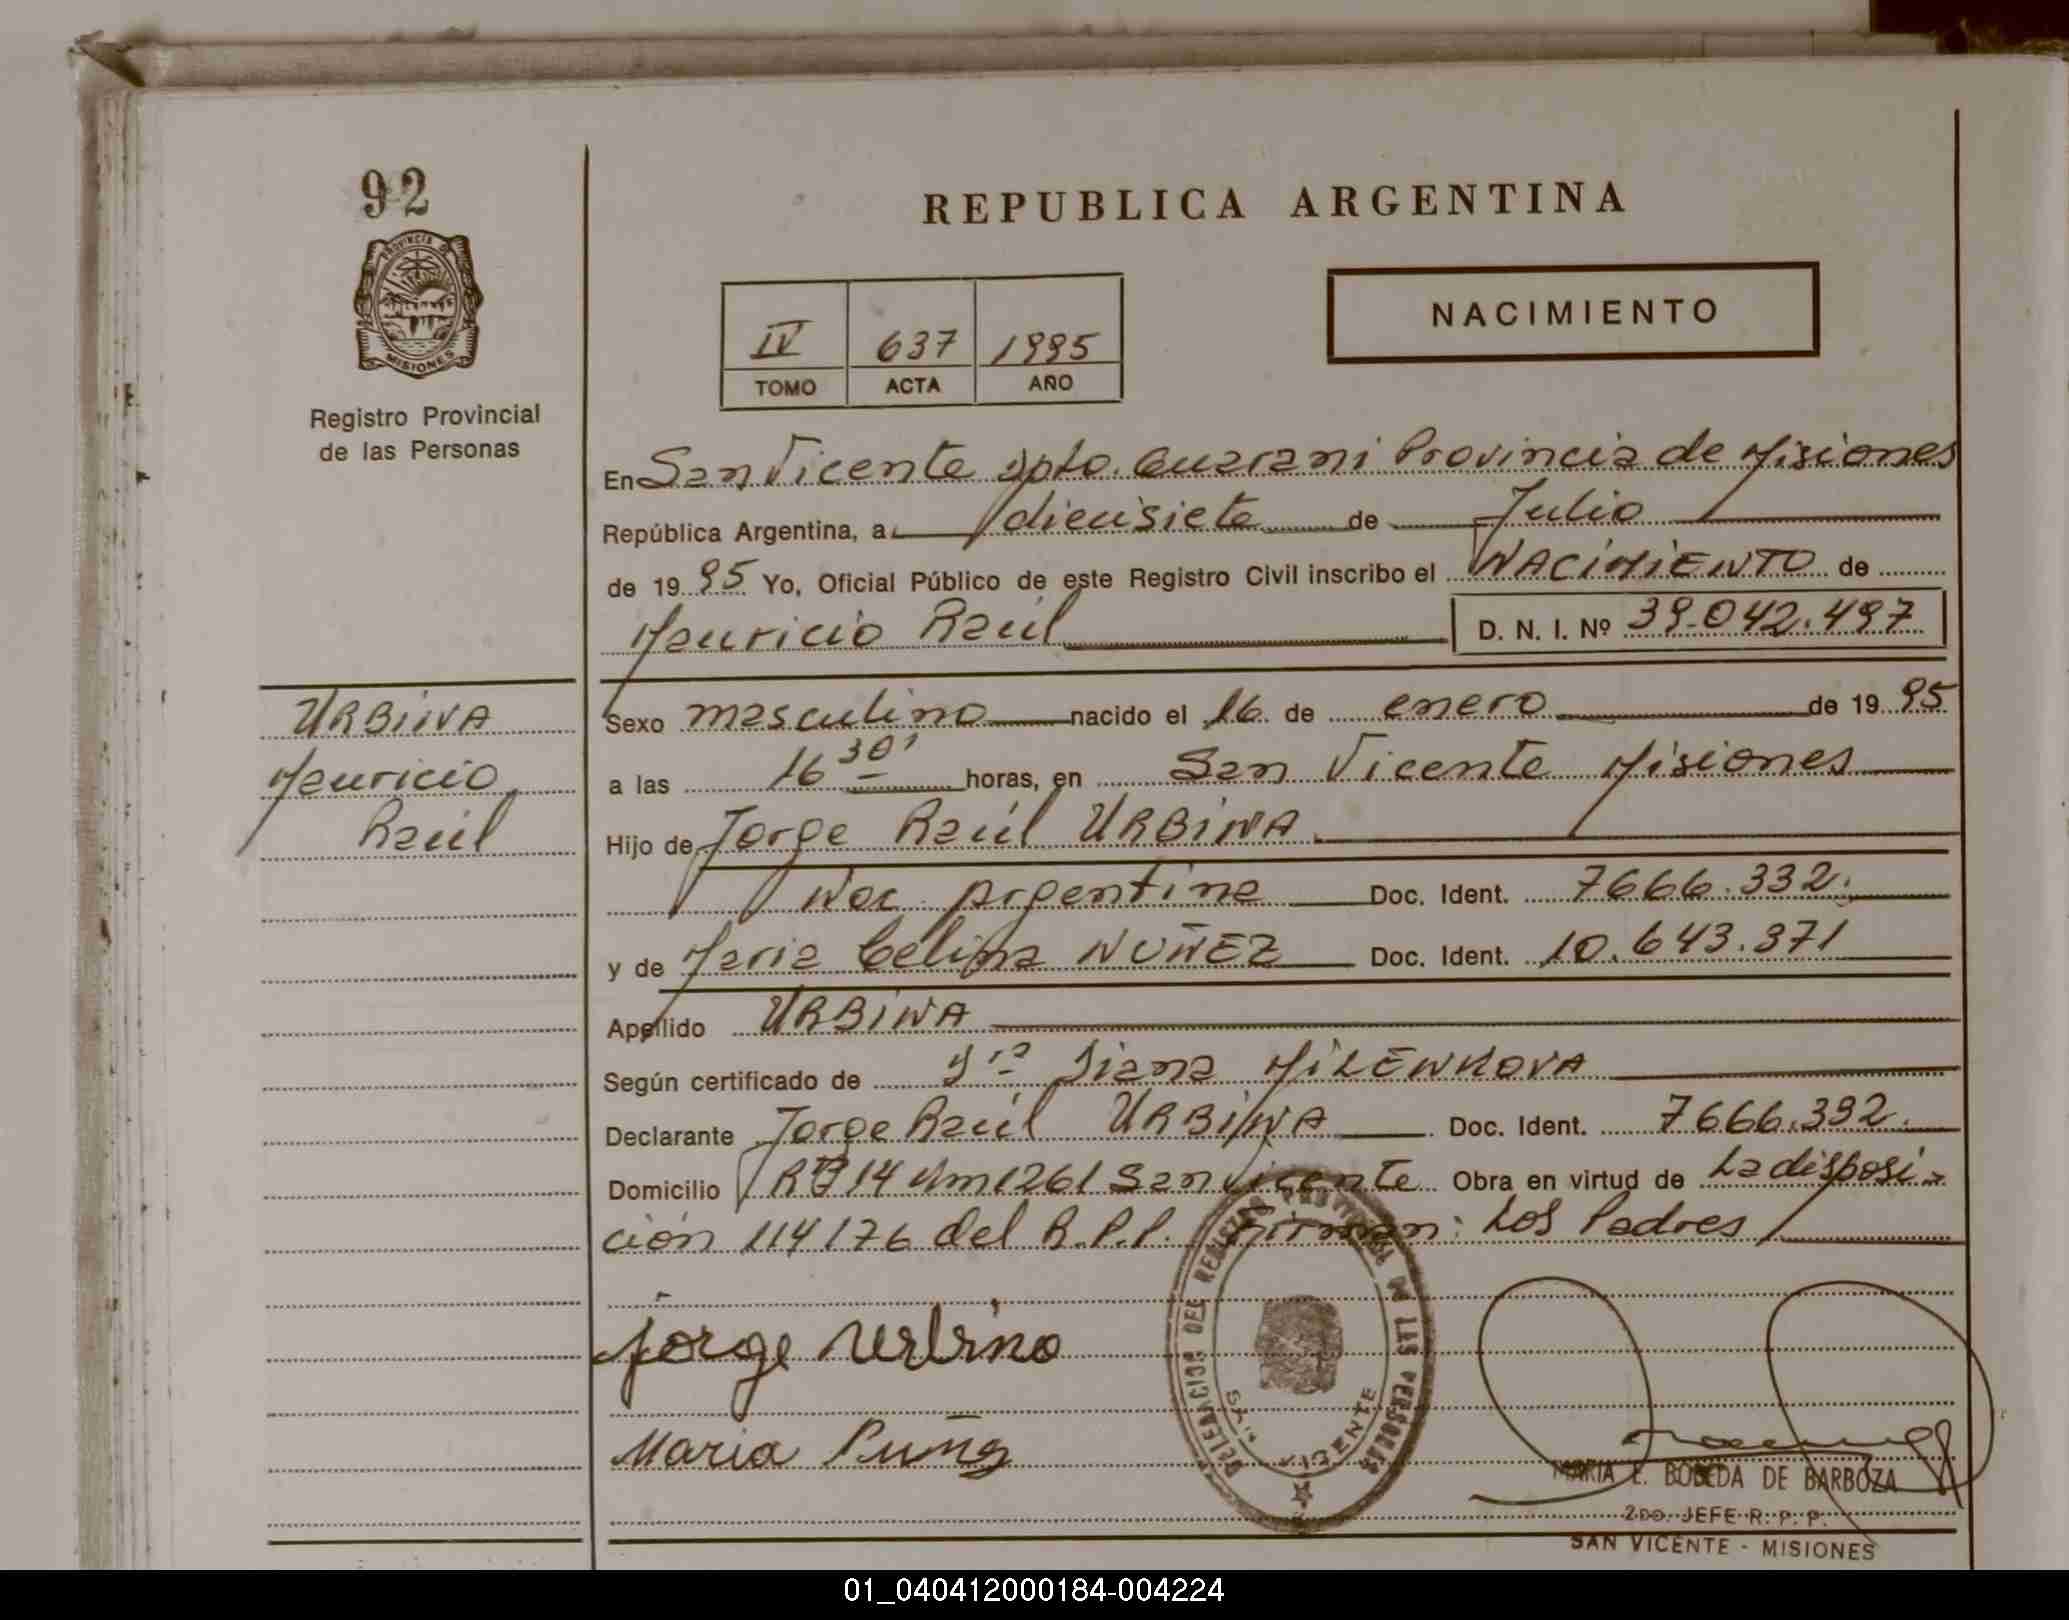 92
PROVINCIA DE
MISIONES
Registro Provincial
de las Personas
URBINA
Mauricio
Raúl
REPUBLICA ARGENTINA
NACIMIENTO
IV 637 1995
TOMO ACTA AÑO
En San Vicente Dpto. Guarani Provincia de Misiones
República Argentina, a diecisiete de Julio
de 1995 Yo, Oficial Público de este Registro Civil inscribo el NACIMIENTO de
Mauricio Raúl D. N. I. Nº 39.042.497
Sexo masculino nacido el 16 de enero de 1995
a las 16 30' horas, en San Vicente Misiones
Hijo de Jorge Raúl URBINA
Nac. Argentina Doc. Ident. 7666.332.
y de Maria Celina NUÑEZ Doc. Ident. 10.643.371
Apellido URBINA
Según certificado de Dra Diana MILENKOVA
Declarante Jorge Raúl URBINA Doc. Ident. 7666.332.
Domicilio 14 Km 1261 San Vicente Obra en virtud de La disposi-
ción 114/76 del R.P.P. Firman: Los Padres
Jorge Urbina
Maria
DELEGACION DEL REGISTRO PROVINCIAL DE LAS PERSONAS
SAN VICENTE
MARIA E. BOBEDA DE BARBOZA
2DO. JEFE R. P. P.
SAN VICENTE - MISIONES
01_040412000184-004224